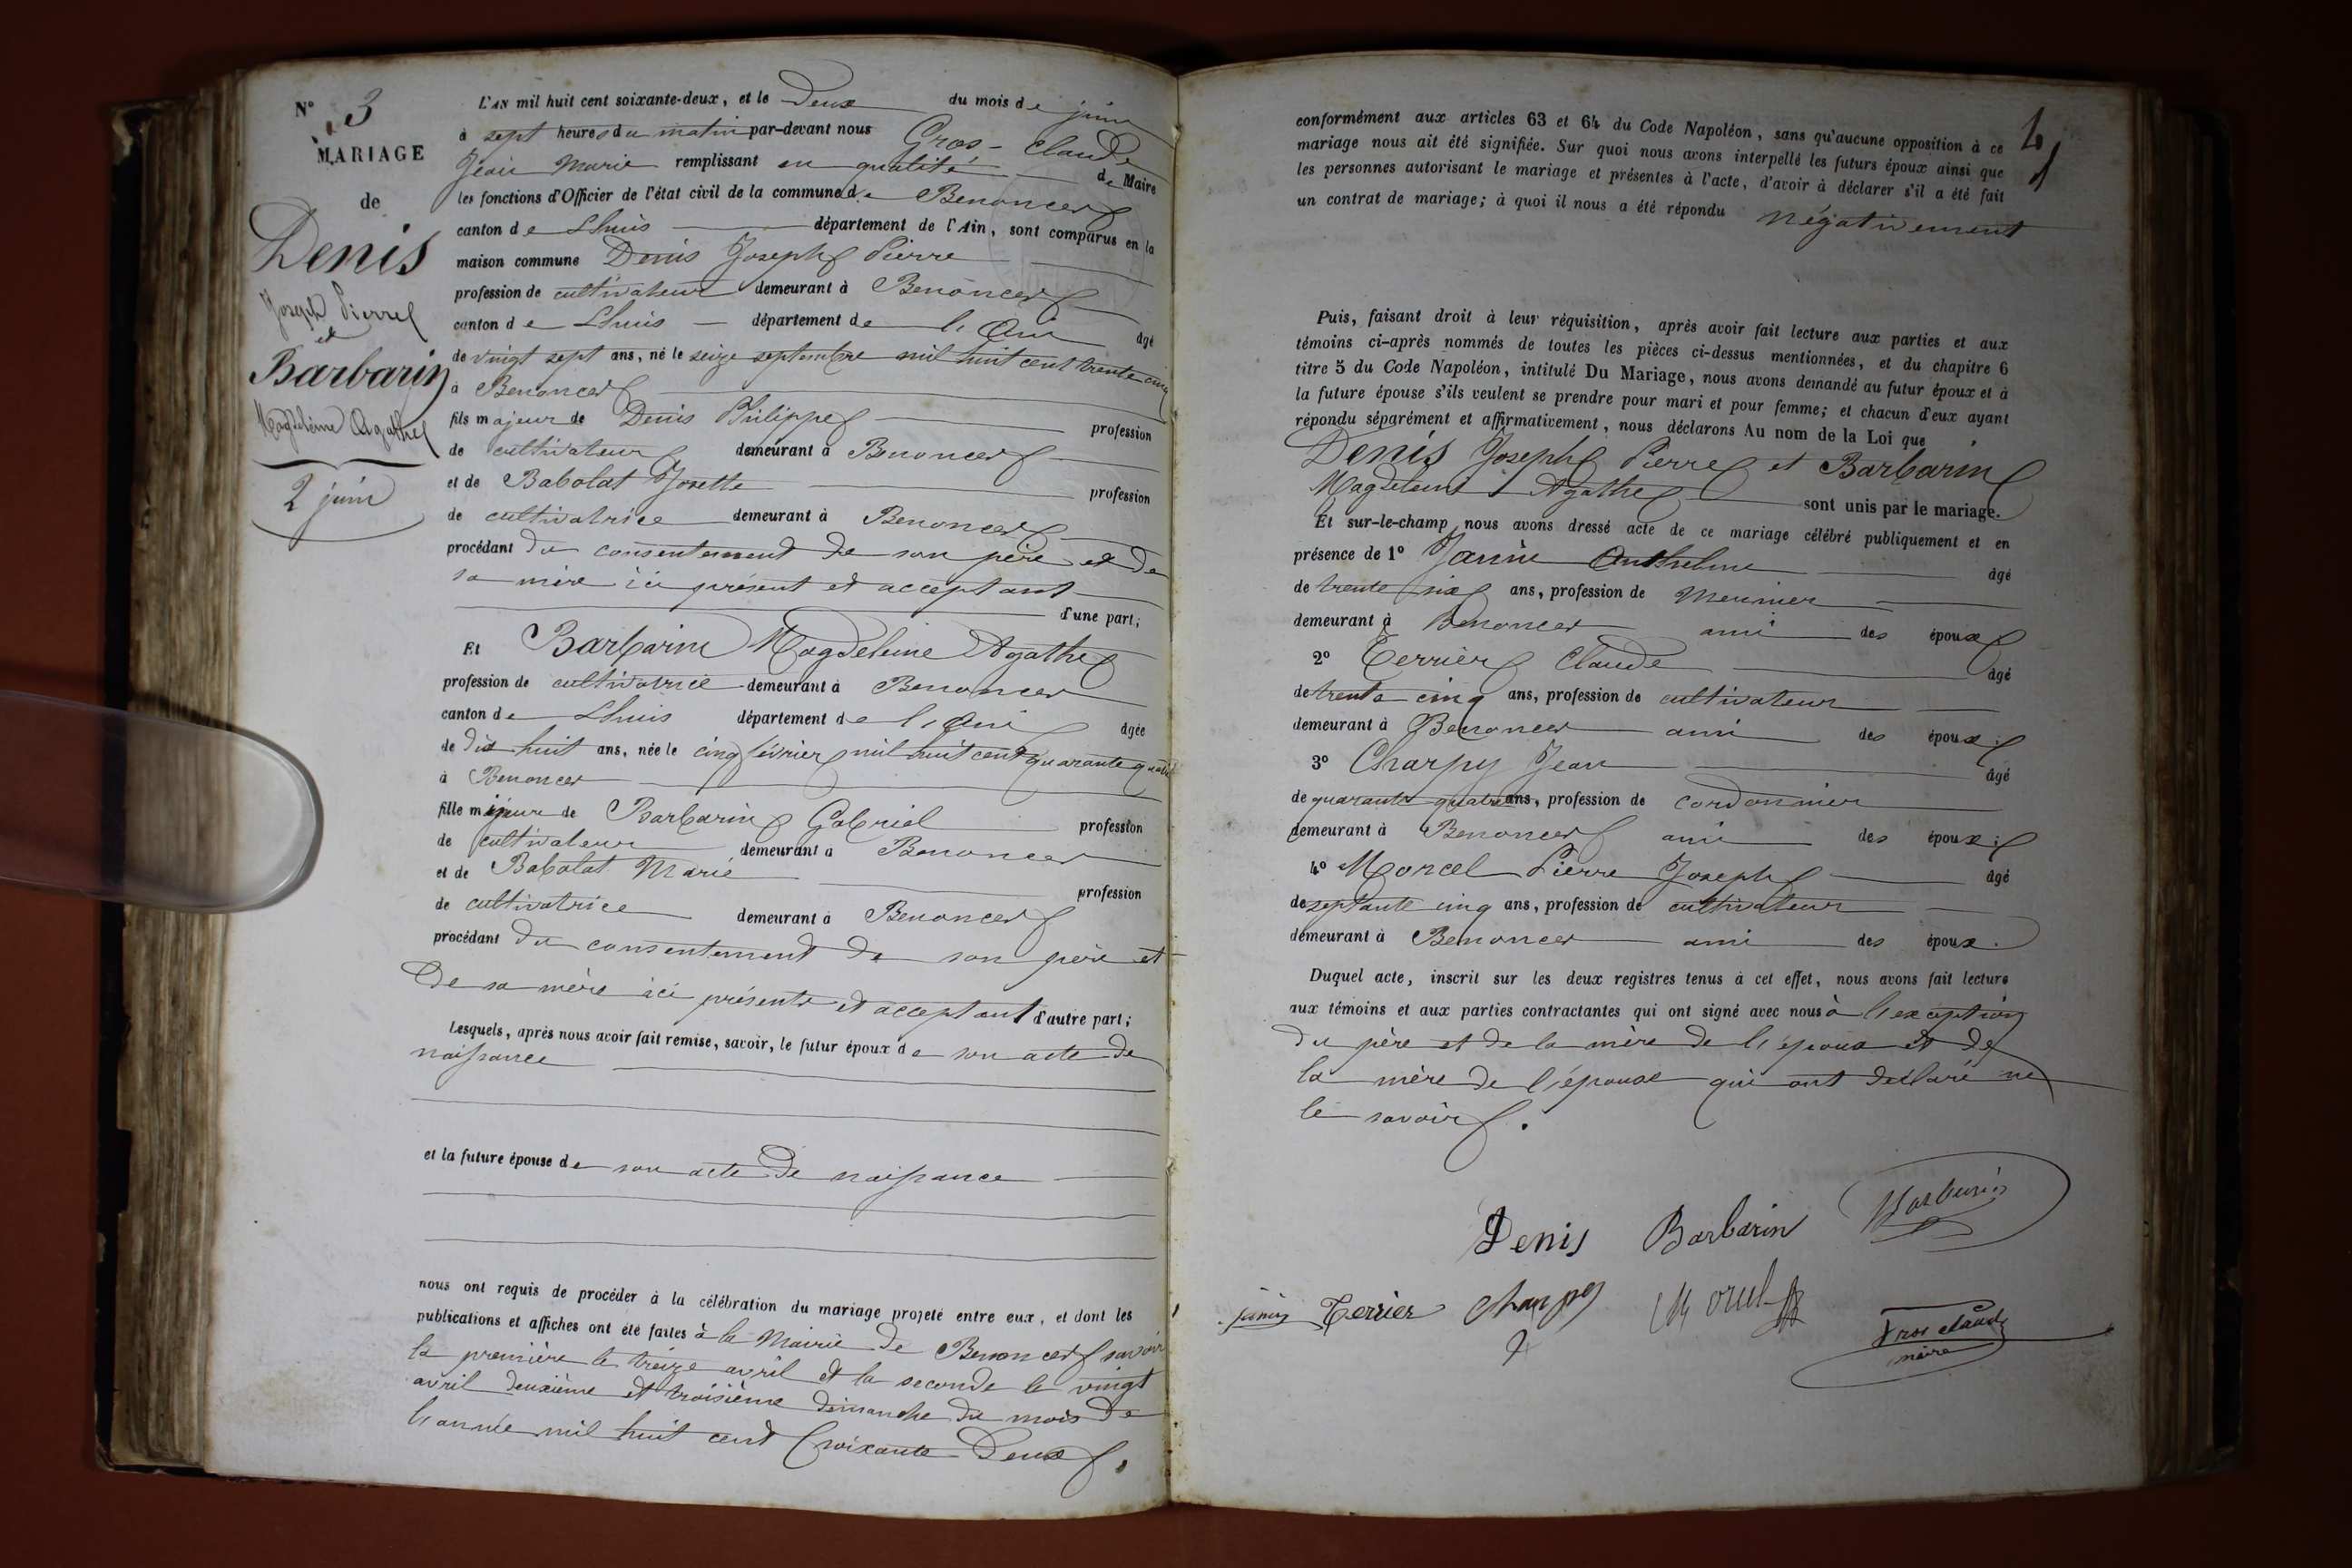 N° 3
MARIAGE
de
Denis
Joseph Pierre
et
Barbarin
Magdeleine Agathe
2 juin
L'AN mil huit cent soixante-deux, et le Deux du mois de juin
à sept heures du matin par-devant nous Gros-Claude
Jean Marie remplissant en qualité de Maire
les fonctions d'Officier de l'état civil de la commune de Benonces
canton de Lhuis département de l'Ain, sont comparus en la
maison commune Denis Joseph Pierre
profession de cultivateur demeurant à Benonces
canton de Lhuis département de l'Ain âgé
de vingt sept ans, né le seize septembre mil huit cent trente cinq
à Benonces
fils majeur de Denis Philippe profession
de cultivateur demeurant à Benonces
et de Babolat Josette profession
de cultivatrice demeurant à Benonces
procédant du consentement de son père et de
sa mère ici présent et acceptant
d'une part;
Et Barbarin Magdeleine Agathe
profession de cultivatrice demeurant à Benonces
canton de Lhuis département de l'Ain âgée
de dix huit ans, née le cinq février mil huit cent quarante quatre
à Benonces
fille mineure de Barbarin Gabriel profession
de cultivateur demeurant à Benonces
et de Babolat Marie profession
de cultivatrice demeurant à Benonces
procédant du consentement de son père et
de sa mère ici présents et acceptant d'autre part;
Lesquels, après nous avoir fait remise, savoir, le futur époux de son acte de
naissance
et la future épouse de son acte de naissance
nous ont requis de procéder à la célébration du mariage projeté entre eux, et dont les
publications et affiches ont été faites à la Mairie de Benonces savoir
la première le treize avril et la seconde le vingt
avril deuxième et troisième dimanche du mois de
l'année mil huit cent soixante Deux.
4
conformément aux articles 63 et 64 du Code Napoléon, sans qu'aucune opposition à ce
mariage nous ait été signifiée. Sur quoi nous avons interpellé les futurs époux ainsi que
les personnes autorisant le mariage et présentes à l'acte, d'avoir à déclarer s'il a été fait
un contrat de mariage; à quoi il nous a été répondu négativement
Puis, faisant droit à leur réquisition, après avoir fait lecture aux parties et aux
témoins ci-après nommés de toutes les pièces ci-dessus mentionnées, et du chapitre 6
titre 5 du Code Napoléon, intitulé Du Mariage, nous avons demandé au futur époux et à
la future épouse s'ils veulent se prendre pour mari et pour femme; et chacun d'eux ayant
répondu séparément et affirmativement, nous déclarons Au nom de la Loi que
Denis Joseph Pierre et Barbarin
Magdeleine Agathe sont unis par le mariage.
Et sur-le-champ nous avons dressé acte de ce mariage célébré publiquement et en
présence de 1° Janin Anthelme âgé
de trente six ans, profession de Meunier
demeurant à Benonces ami des époux
2° Terrier Claude âgé
de trente cinq ans, profession de cultivateur
demeurant à Benonces ami des époux;
3° Charpy Jean âgé
de quarante quatre ans, profession de cordonnier
demeurant à Benonces ami des époux;
4° Morcel Pierre Joseph âgé
de septante cinq ans, profession de cultivateur
demeurant à Benonces ami des époux.
Duquel acte, inscrit sur les deux registres tenus à cet effet, nous avons fait lecture
aux témoins et aux parties contractantes qui ont signé avec nous à l'exception
du père et de la mère de l'époux et de
la mère de l'épouse qui ont déclaré ne
le savoir.
Denis Barbarin Barbarin
janin Terrier Charpy
Gros claude
maire